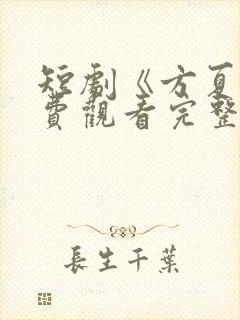 短劇《方夏
費觀看完整
長生千葉